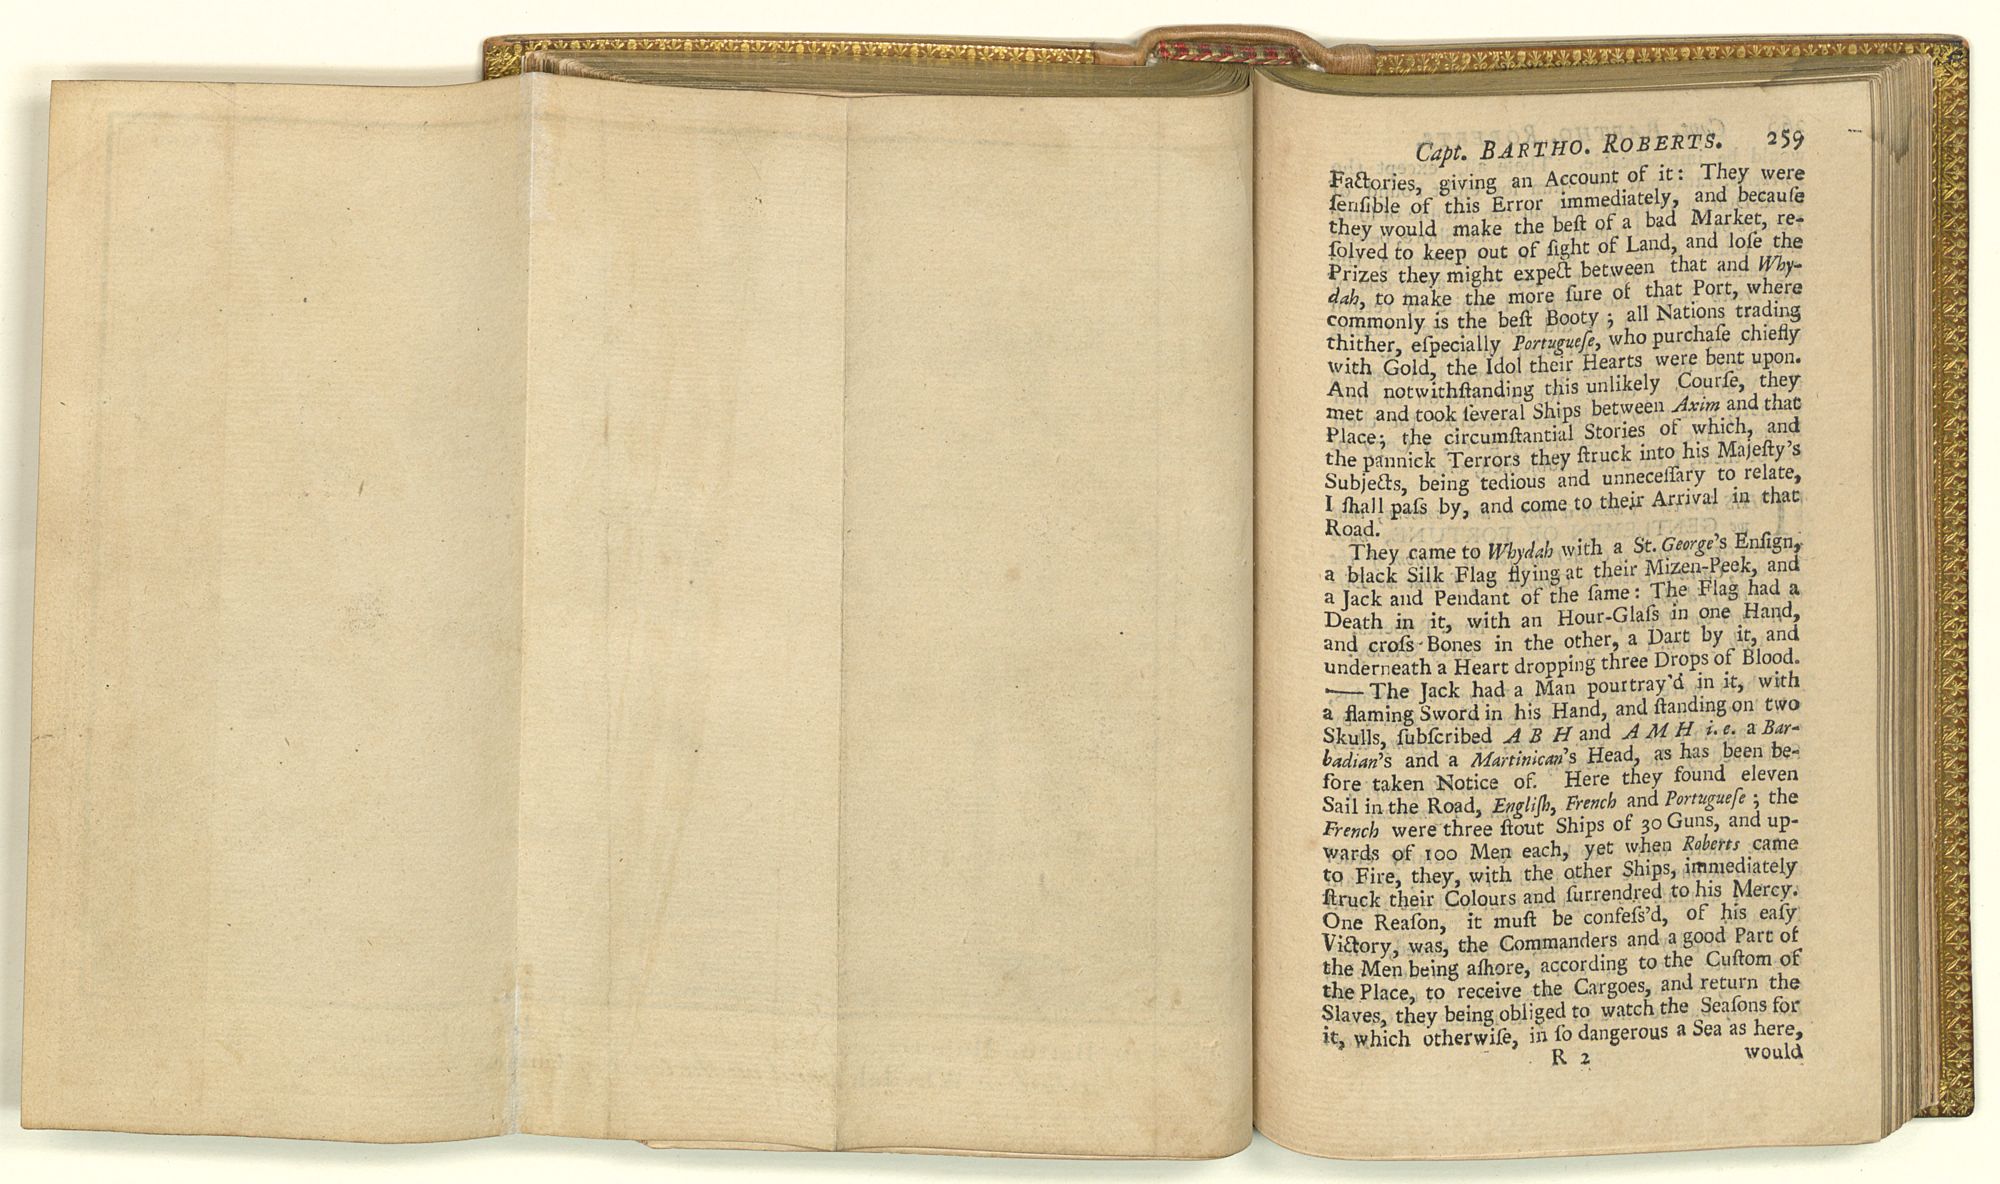 Capt. BARTHO. ROBERTS. 259
Factories, giving an Account of it: They were
ſenſible of this Error immediately, and becauſe
they would make the beſt of a bad Market, re-
ſolved to keep out of ſight of Land, and loſe the
Prizes they might expect between that and Why-
dah, to make the more ſure of that Port, where
commonly is the beſt Booty; all Nations trading
thither, eſpecially Portugueſe, who purchaſe chiefly
with Gold, the Idol their Hearts were bent upon.
And notwithſtanding this unlikely Courſe, they
met and took ſeveral Ships between Axim and that
Place; the circumſtantial Stories of which, and
the pannick Terrors they ſtruck into his Majeſty's
Subjects, being tedious and unneceſſary to relate,
I ſhall paſs by, and come to their Arrival in that
Road.
They came to Whydah with a St. George's Enſign,
a black Silk Flag flying at their Mizen-Peek, and
a Jack and Pendant of the ſame: The Flag had a
Death in it, with an Hour-Glaſs in one Hand,
and croſs-Bones in the other, a Dart by it, and
underneath a Heart dropping three Drops of Blood.
—The Jack had a Man pourtray'd in it, with
a flaming Sword in his Hand, and ſtanding on two
Skulls, ſubſcribed A B H and A M H i. e. a Bar-
badian's and a Martinican's Head, as has been be-
fore taken Notice of. Here they found eleven
Sail in the Road, Engliſh, French and Portugueſe; the
French were three ſtout Ships of 30 Guns, and up-
wards of 100 Men each, yet when Roberts came
to Fire, they, with the other Ships, immediately
ſtruck their Colours and ſurrendred to his Mercy.
One Reaſon, it muſt be confeſs'd, of his eaſy
Victory, was, the Commanders and a good Part of
the Men being aſhore, according to the Cuſtom of
the Place, to receive the Cargoes, and return the
Slaves, they being obliged to watch the Seaſons for
it, which otherwiſe, in ſo dangerous a Sea as here,
R 2 would